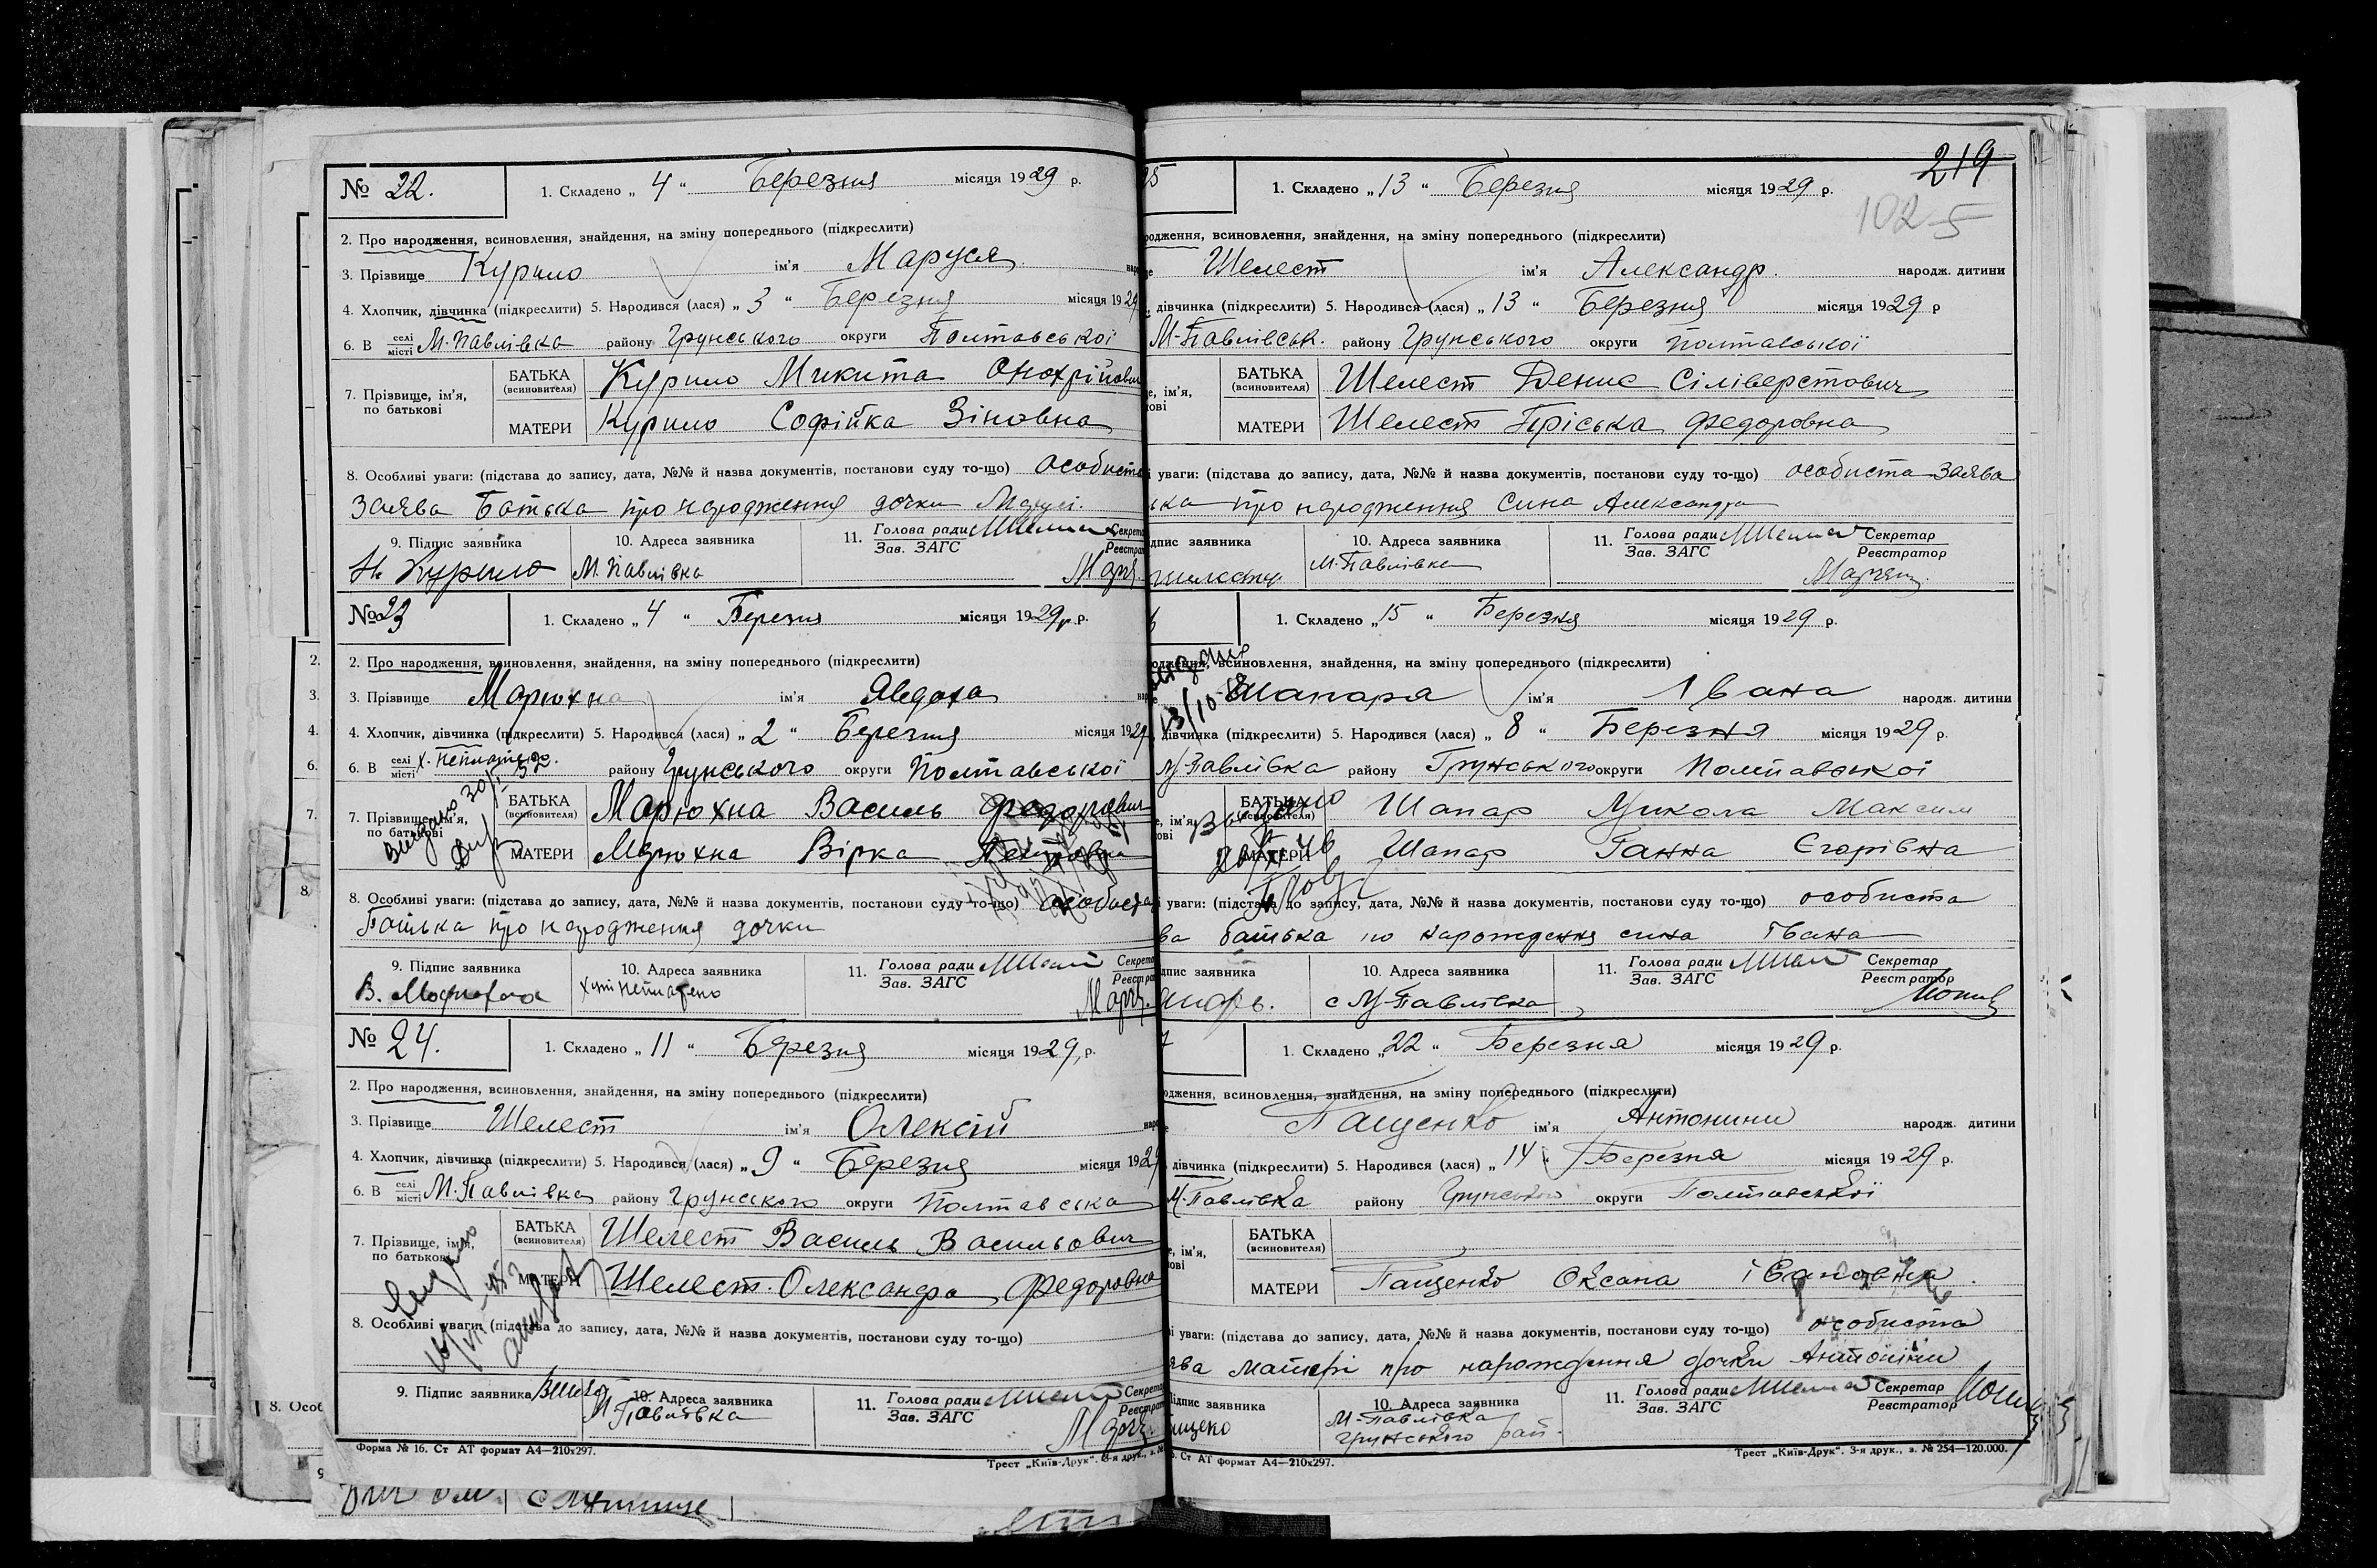 № 22.
1. Складено „ 4 “ Березня місяця 1929 р.
2. Про народження, всиновлення, знайдення, на зміну попереднього (підкреслити)
3. Прізвище Курило ім'я Маруся
4. Хлопчик, дівчинка (підкреслити) 5. Народився (лася) „ 3 “ Березня місяця 1929
6. В селі місті М. Павлівка району Грунського округи Полтавської
7. Прізвище, ім'я, по батькові
БАТЬКА (всиновителя) Курило Микита
МАТЕРИ Курило Софійка Зіновна
8. Особливі уваги: (підстава до запису, дата, №№ й назва документів, постанови суду то-що) особиста
заява Батька про народження дочки Марусі.
9. Підпис заявника 10. Адреса заявника 11. Голова ради Зав. ЗАГС
Н. Курило М. Павлівка
№ 23
1. Складено „ 4 “ Березня місяця 1929 р.
2. Про народження, всиновлення, знайдення, на зміну попереднього (підкреслити)
3. Прізвище Марюхна ім'я Явдоха
4. Хлопчик, дівчинка (підкреслити) 5. Народився (лася) „ 2 “ Березня місяця 1929
6. В селі місті району Грунського округи Полтавської
7. Прізвище, ім'я, по батькові
БАТЬКА (всиновителя) Марюхна Василь Федорович
МАТЕРИ Марюхна Вірка
8. Особливі уваги: (підстава до запису, дата, №№ й назва документів, постанови суду то-що) особиста
Батька про народження дочки
9. Підпис заявника 10. Адреса заявника 11. Голова ради Зав. ЗАГС
№ 24.
1. Складено „ 11 “ Березня місяця 1929, р.
2. Про народження, всиновлення, знайдення, на зміну попереднього (підкреслити)
3. Прізвище Шелест ім'я Олексій
4. Хлопчик, дівчинка (підкреслити) 5. Народився (лася) „ 9 “ Березня місяця 1929
6. В селі місті М. Павлівка району Грунського округи Полтавська
7. Прізвище, ім'я, по батькові
БАТЬКА (всиновителя) Шелест Василь Васильович
МАТЕРИ Шелест Олександра Федоровна
8. Особливі уваги: (підстава до запису, дата, №№ й назва документів, постанови суду то-що)
9. Підпис заявника 10. Адреса заявника 11. Голова ради Зав. ЗАГС
М Павлівка
Форма № 16. Ст АТ формат А4—210х297.
Трест „Київ-Друк“. 3-я друк.,
219
1025
1. Складено „ 13 “ Березня місяця 1929 р.
родження, всиновлення, знайдення, на зміну попереднього (підкреслити)
Шелест ім'я Александр. народж. дитини
дівчинка (підкреслити) 5. Народився (лася) „ 13 “ Березня місяця 1929 р
М-Павлівськ. району Грунського округи Полтавської
БАТЬКА (всиновителя) Шелест Денис Сіліверстович
МАТЕРИ Шелест Пріська Федоровна
уваги: (підстава до запису, дата, №№ й назва документів, постанови суду то-що) особиста заява
ька про народження Сина Александра
заявника 10. Адреса заявника 11. Голова ради Зав. ЗАГС Секретар Реєстратор
М. Павлівка
1. Складено „ 15 “ Березня місяця 1929 р.
всиновлення, знайдення, на зміну попереднього (підкреслити)
Шапаря ім'я Івана народж. дитини
дівчинка (підкреслити) 5. Народився (лася) „ 8 “ Березня місяця 1929 р.
М-Павлівка району Грунського округи Полтавської
БАТЬКА (всиновителя) Шапар Микола Максим
МАТЕРИ Шапар Ганна Єгорівна
уваги: (підстава до запису, дата, №№ й назва документів, постанови суду то-що) особиста
ва батька по нарождення сина Івана
заявника 10. Адреса заявника 11. Голова ради Зав. ЗАГС Секретар Реєстратор
с М-Павлівка
1. Складено „ 22 “ Березня місяця 1929 р.
всиновлення, знайдення, на зміну попереднього (підкреслити)
Пащенко ім'я Антонини народж. дитини
дівчинка (підкреслити) 5. Народився (лася) „ 14 “ Березня місяця 1929 р.
М-Павлівка району Грунського округи Полтавської
БАТЬКА (всиновителя)
МАТЕРИ Пащенко Оксана Івановна
уваги: (підстава до запису, дата, №№ й назва документів, постанови суду то-що) особиста
ява матері про нарождення дочки Антоніни
заявника 10. Адреса заявника 11. Голова ради Зав. ЗАГС Секретар Реєстратор
М-Павлівка
Грунського рай.
Ст АТ формат А4—210х297.
Трест „Київ-Друк“. 3-я друк., з. № 254—120.000.